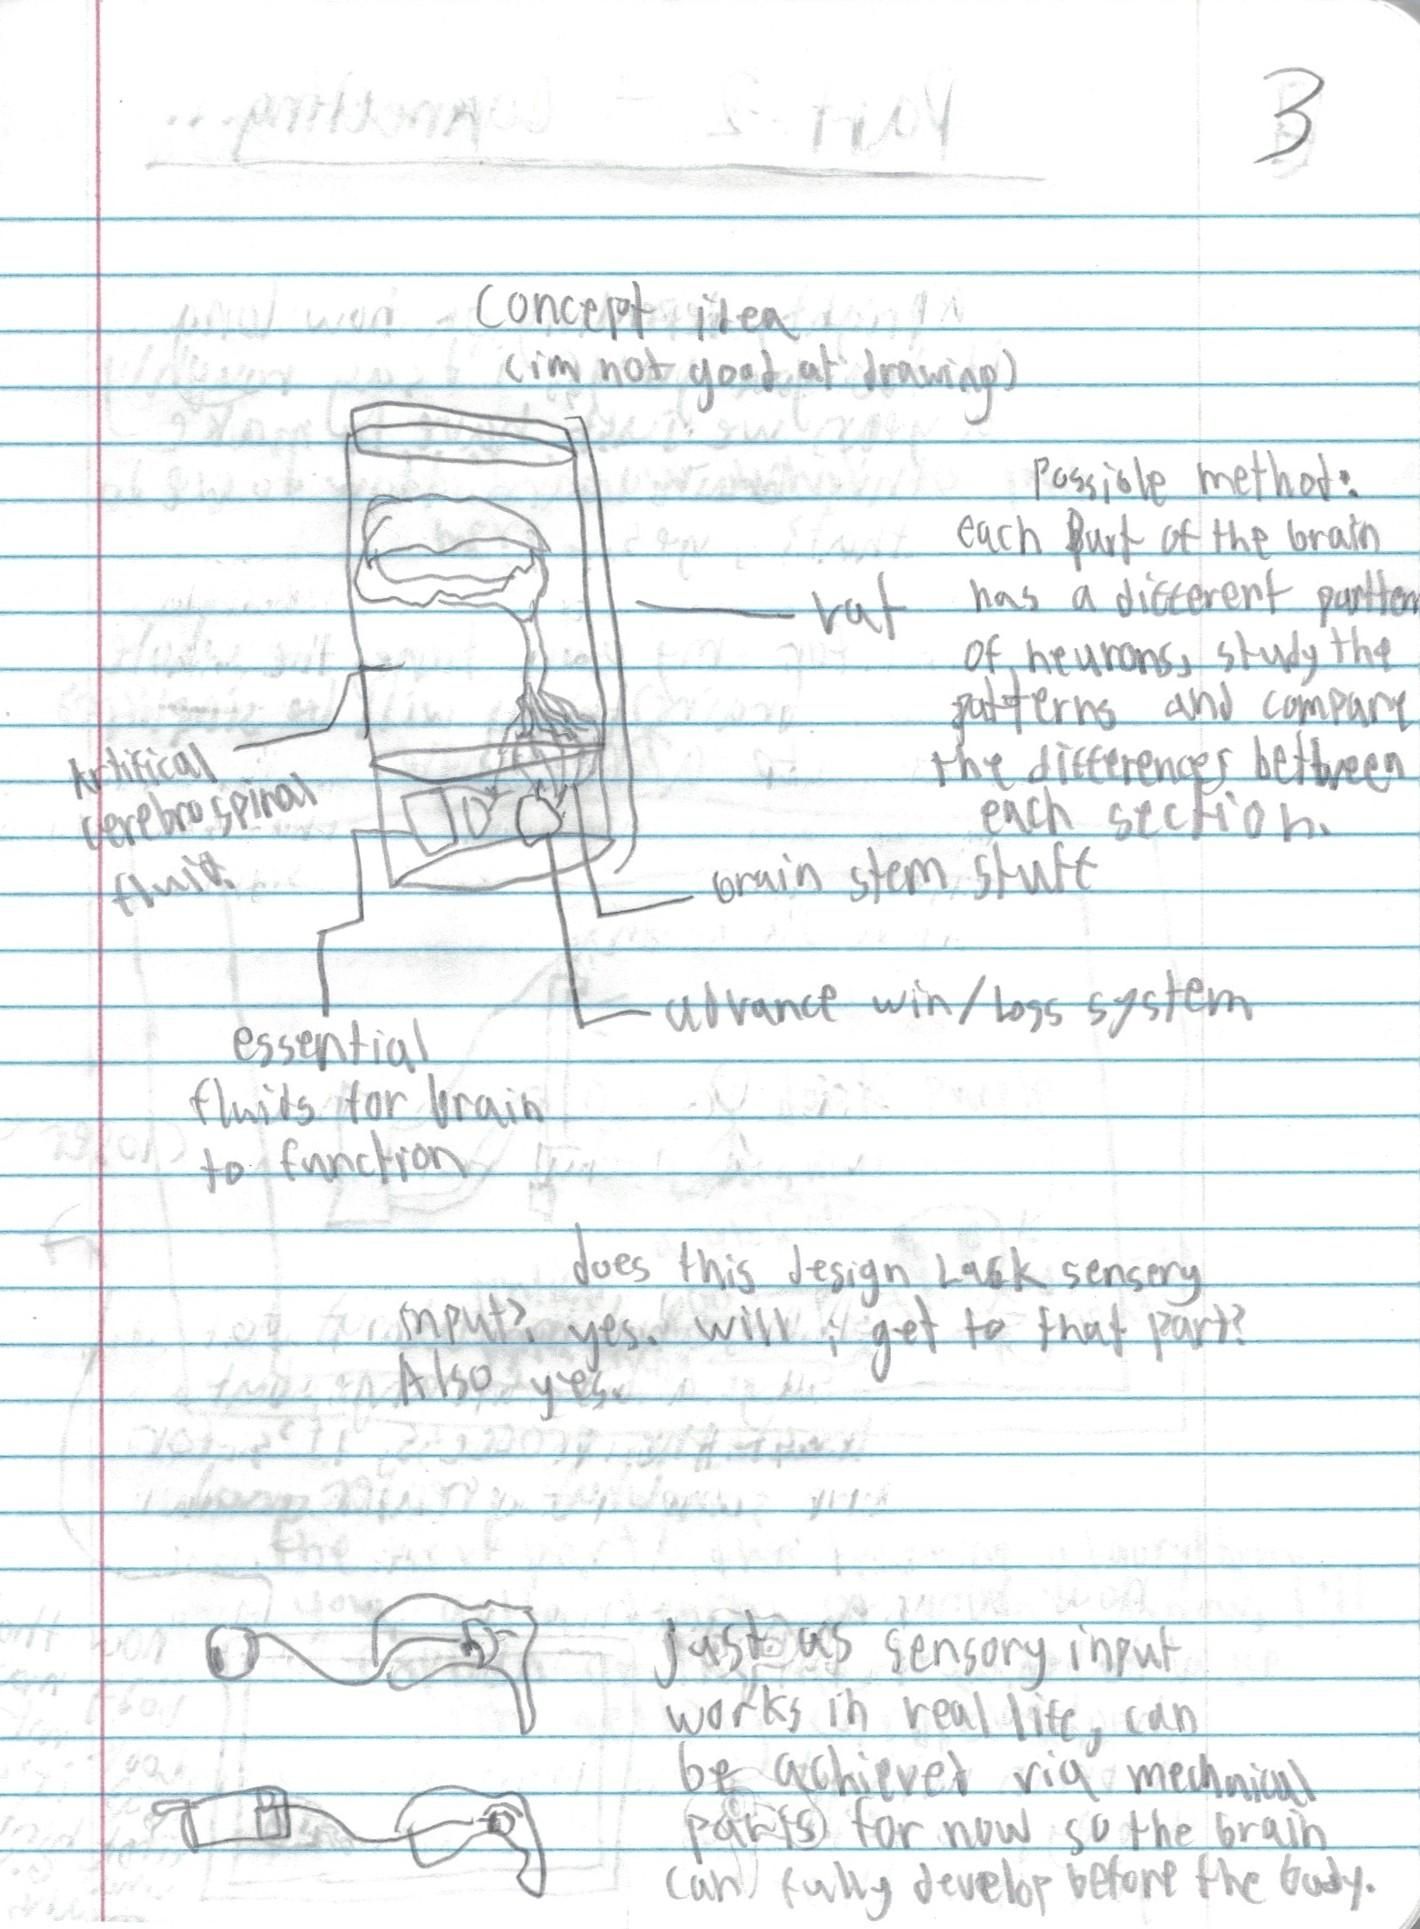 3
Concept idea
(im not good at drawing)
Possible method:
each part of the brain
has a different pattern
of neurons, study the
patterns and compare
the differences between
each section.
vat
Artifical
cerebrospinal
fluid.
brain stem stuff
advance win/loss system
essential
fluids for brain
to function
does this design Lack sensery
input? yes. will i get to that part?
Also yes.
just as sensory input
works in real life, can
be achieved via mechnical
parts) for now so the brain
can fully develop before the body.